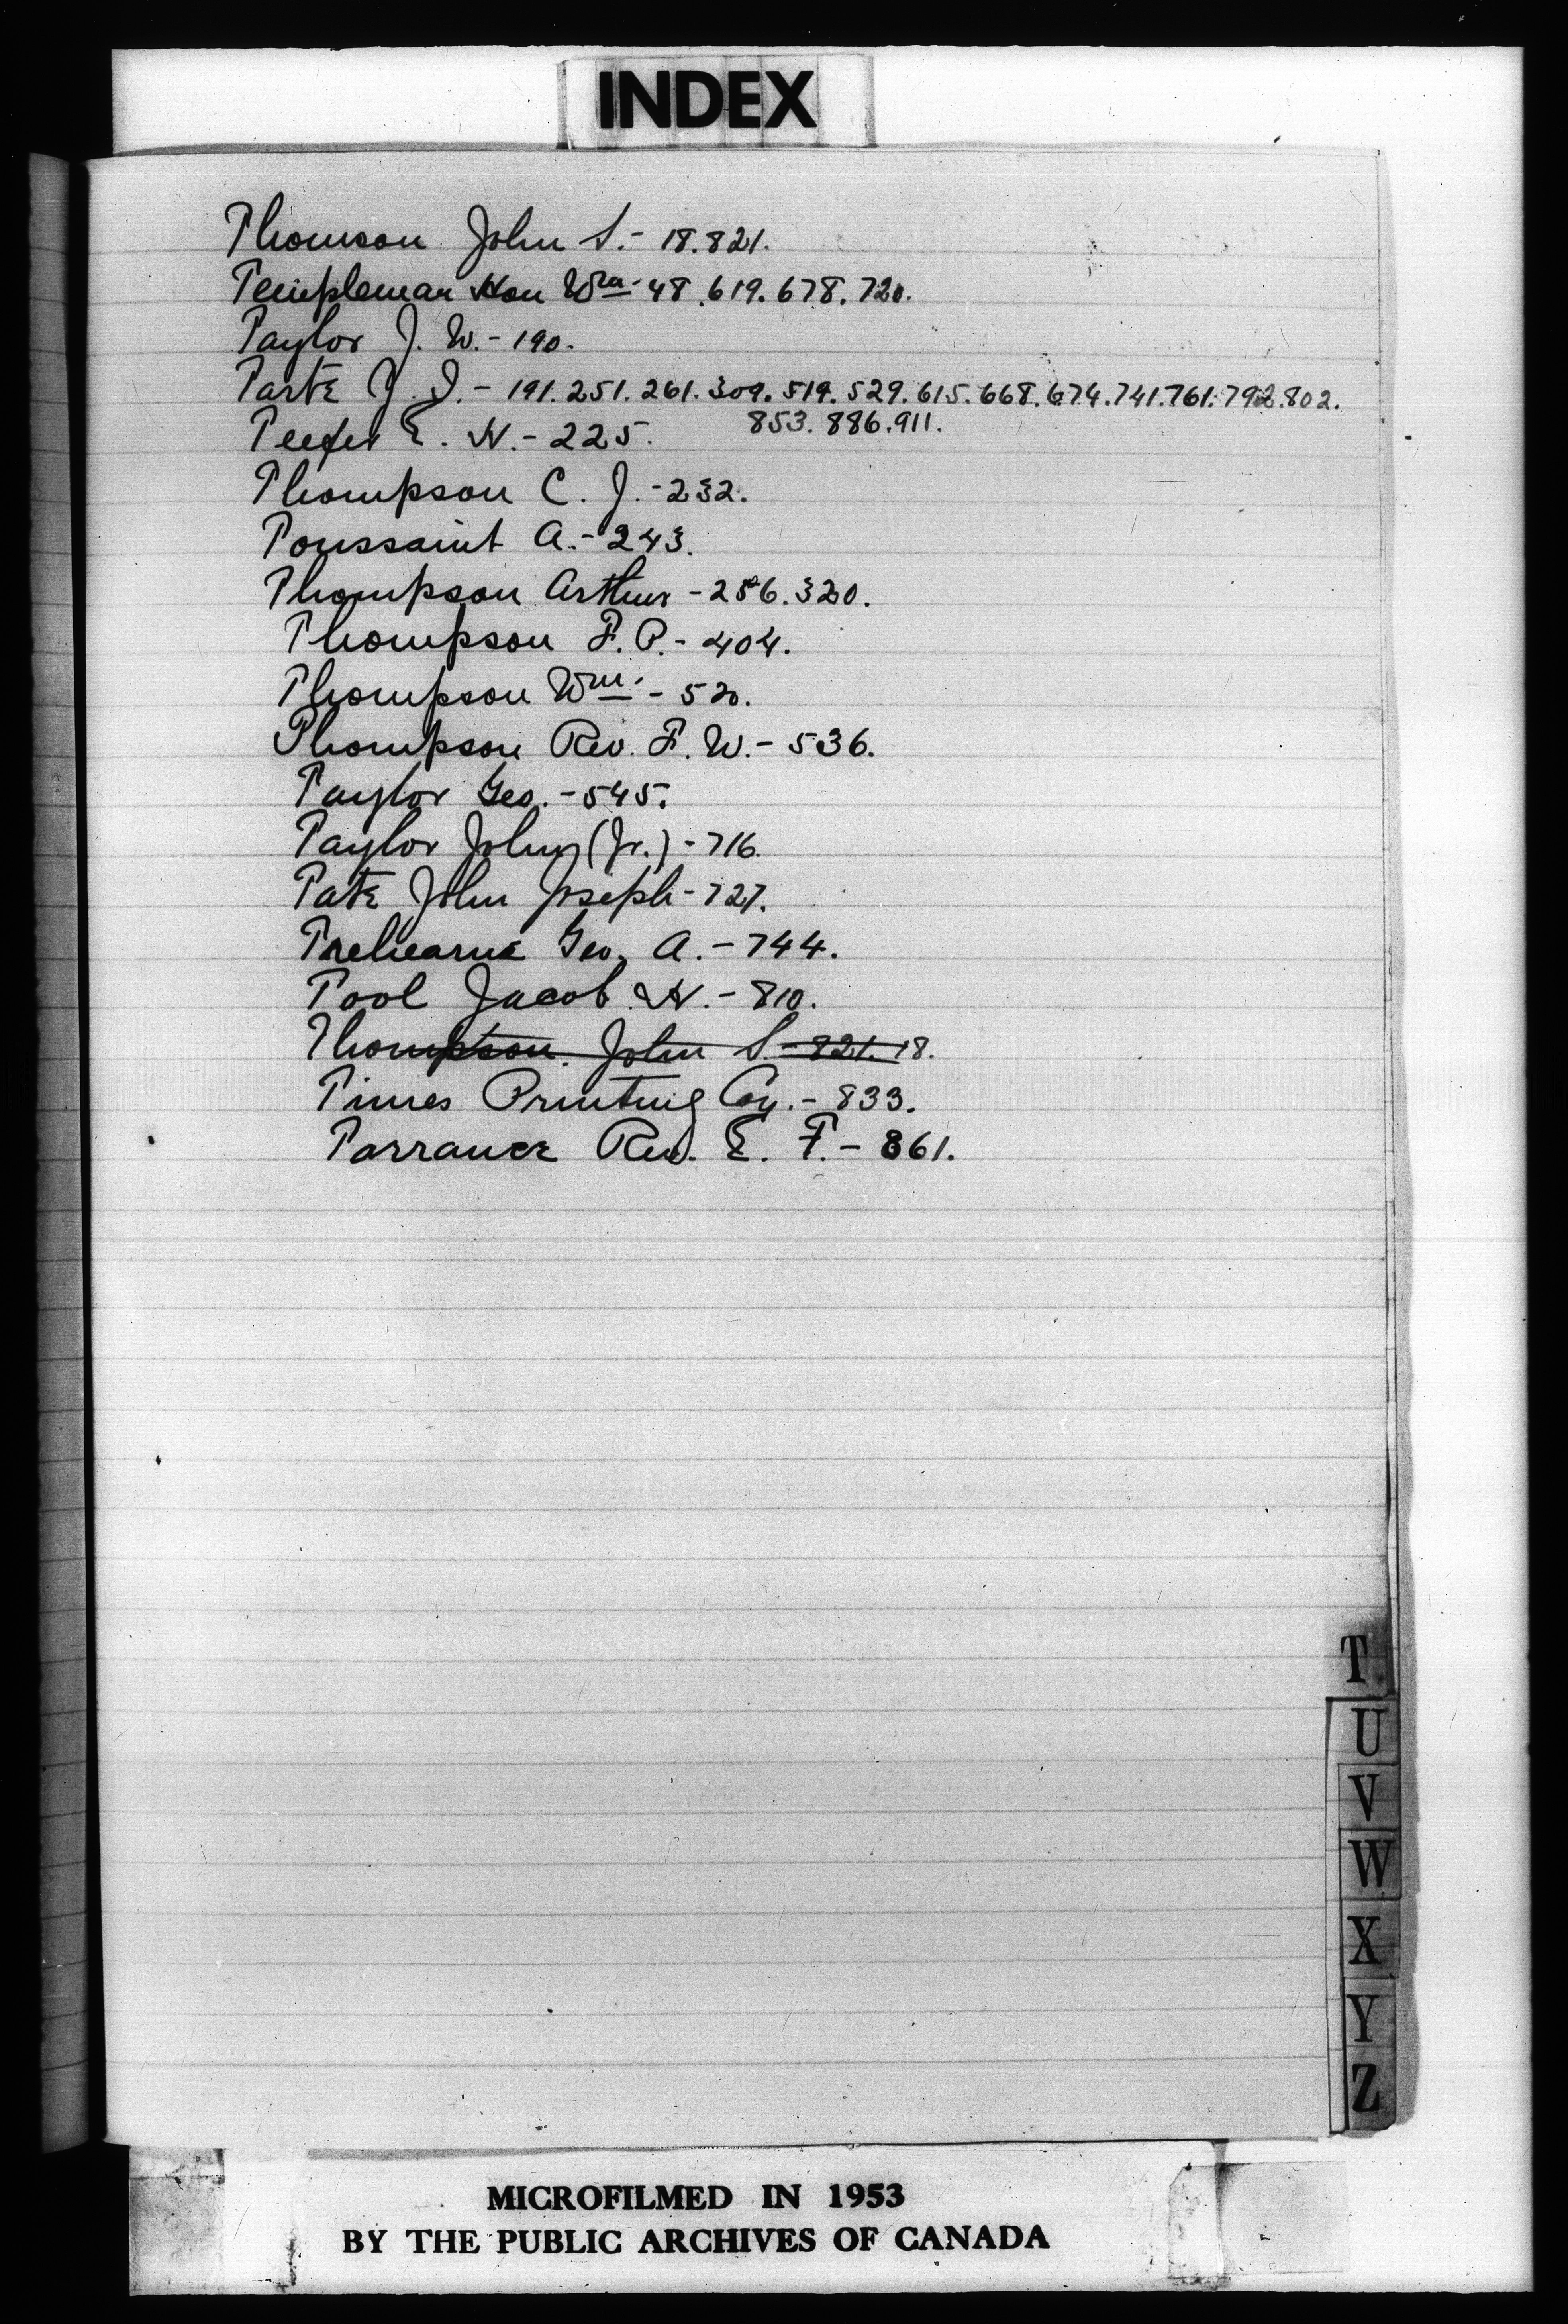 INDEX
Thomson John S.- 18.821.
Templeman Hon Wm- 48.619.678.720.
Taylor J. W.- 190.
Tarte J. I.- 191.251.261.309.519.529.615.668.674.741.761.792.802.
853.886.911.
Teefer E. H.- 225.
Thompson C. J.- 232.
Toussaint A.- 243.
Thompson Arthur - 256.320.
Thompson F. P.- 404.
Thompson Wm. - 520.
Thompson Rev. F. W.- 536.
Taylor Geo. - 545.
Taylor John (Jr.) - 716.
Tate John Joseph - 727.
Trehearne Geo. A. - 744.
Tool Jacob H. - 810.
Thompson John S. - 821.18.
Times Printing Coy. - 833.
Torrance Rev. E. F. - 861.
T
U
V
W
X
Y
Z
MICROFILMED IN 1953
BY THE PUBLIC ARCHIVES OF CANADA